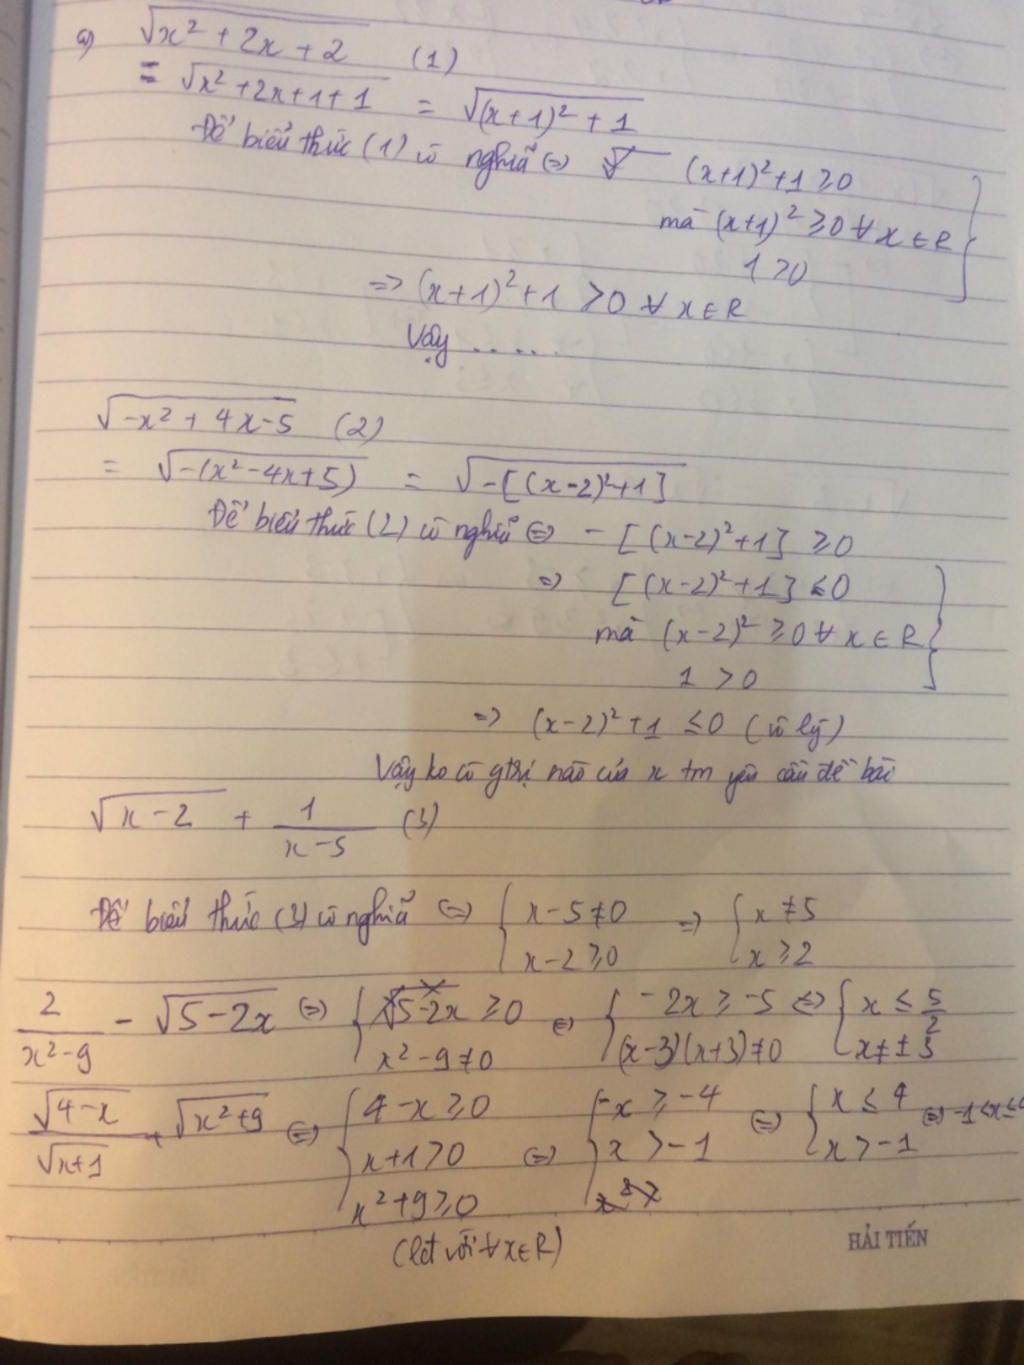 a) √(x² + 2x + 2) (1)
= √(x² + 2x + 1 + 1) = √((x+1)² + 1)
Để biểu thức (1) có nghĩa ⇔ √ (x+1)² + 1 ≥ 0
mà (x+1)² ≥ 0 ∀ x ∈ R
1 > 0
=> (x+1)² + 1 > 0 ∀ x ∈ R
Vậy .....
√(-x² + 4x - 5) (2)
= √(-(x² - 4x + 5)) = √(-[(x-2)² + 1])
Để biểu thức (2) có nghĩa ⇔ - [(x-2)² + 1] ≥ 0
=> [(x-2)² + 1] ≤ 0
mà (x-2)² ≥ 0 ∀ x ∈ R
1 > 0
=> (x-2)² + 1 ≤ 0 (vô lý)
Vậy ko có gtrị nào của x tm yêu cầu đề bài
√(x-2) + 1/(x-5) (3)
Để biểu thức (3) có nghĩa ⇔ { x - 5 ≠ 0 => { x ≠ 5
x - 2 ≥ 0 x ≥ 2
2/(x²-9) - √(5-2x) ⇔ { 5-2x ≥ 0 ⇔ { -2x ≥ -5 ⇔ { x ≤ 5/2
x² - 9 ≠ 0 (x-3)(x+3) ≠ 0 x ≠ ± 3
√(4-x)/√(x+1) + √(x²+9) ⇔ { 4 - x ≥ 0 ⇔ { -x ≥ -4 ⇔ { x ≤ 4 ⇔ -1 < x ≤
x + 1 > 0 x > -1 x > -1
x² + 9 ≥ 0
(lđ với ∀ x ∈ R)
HẢI TIẾN